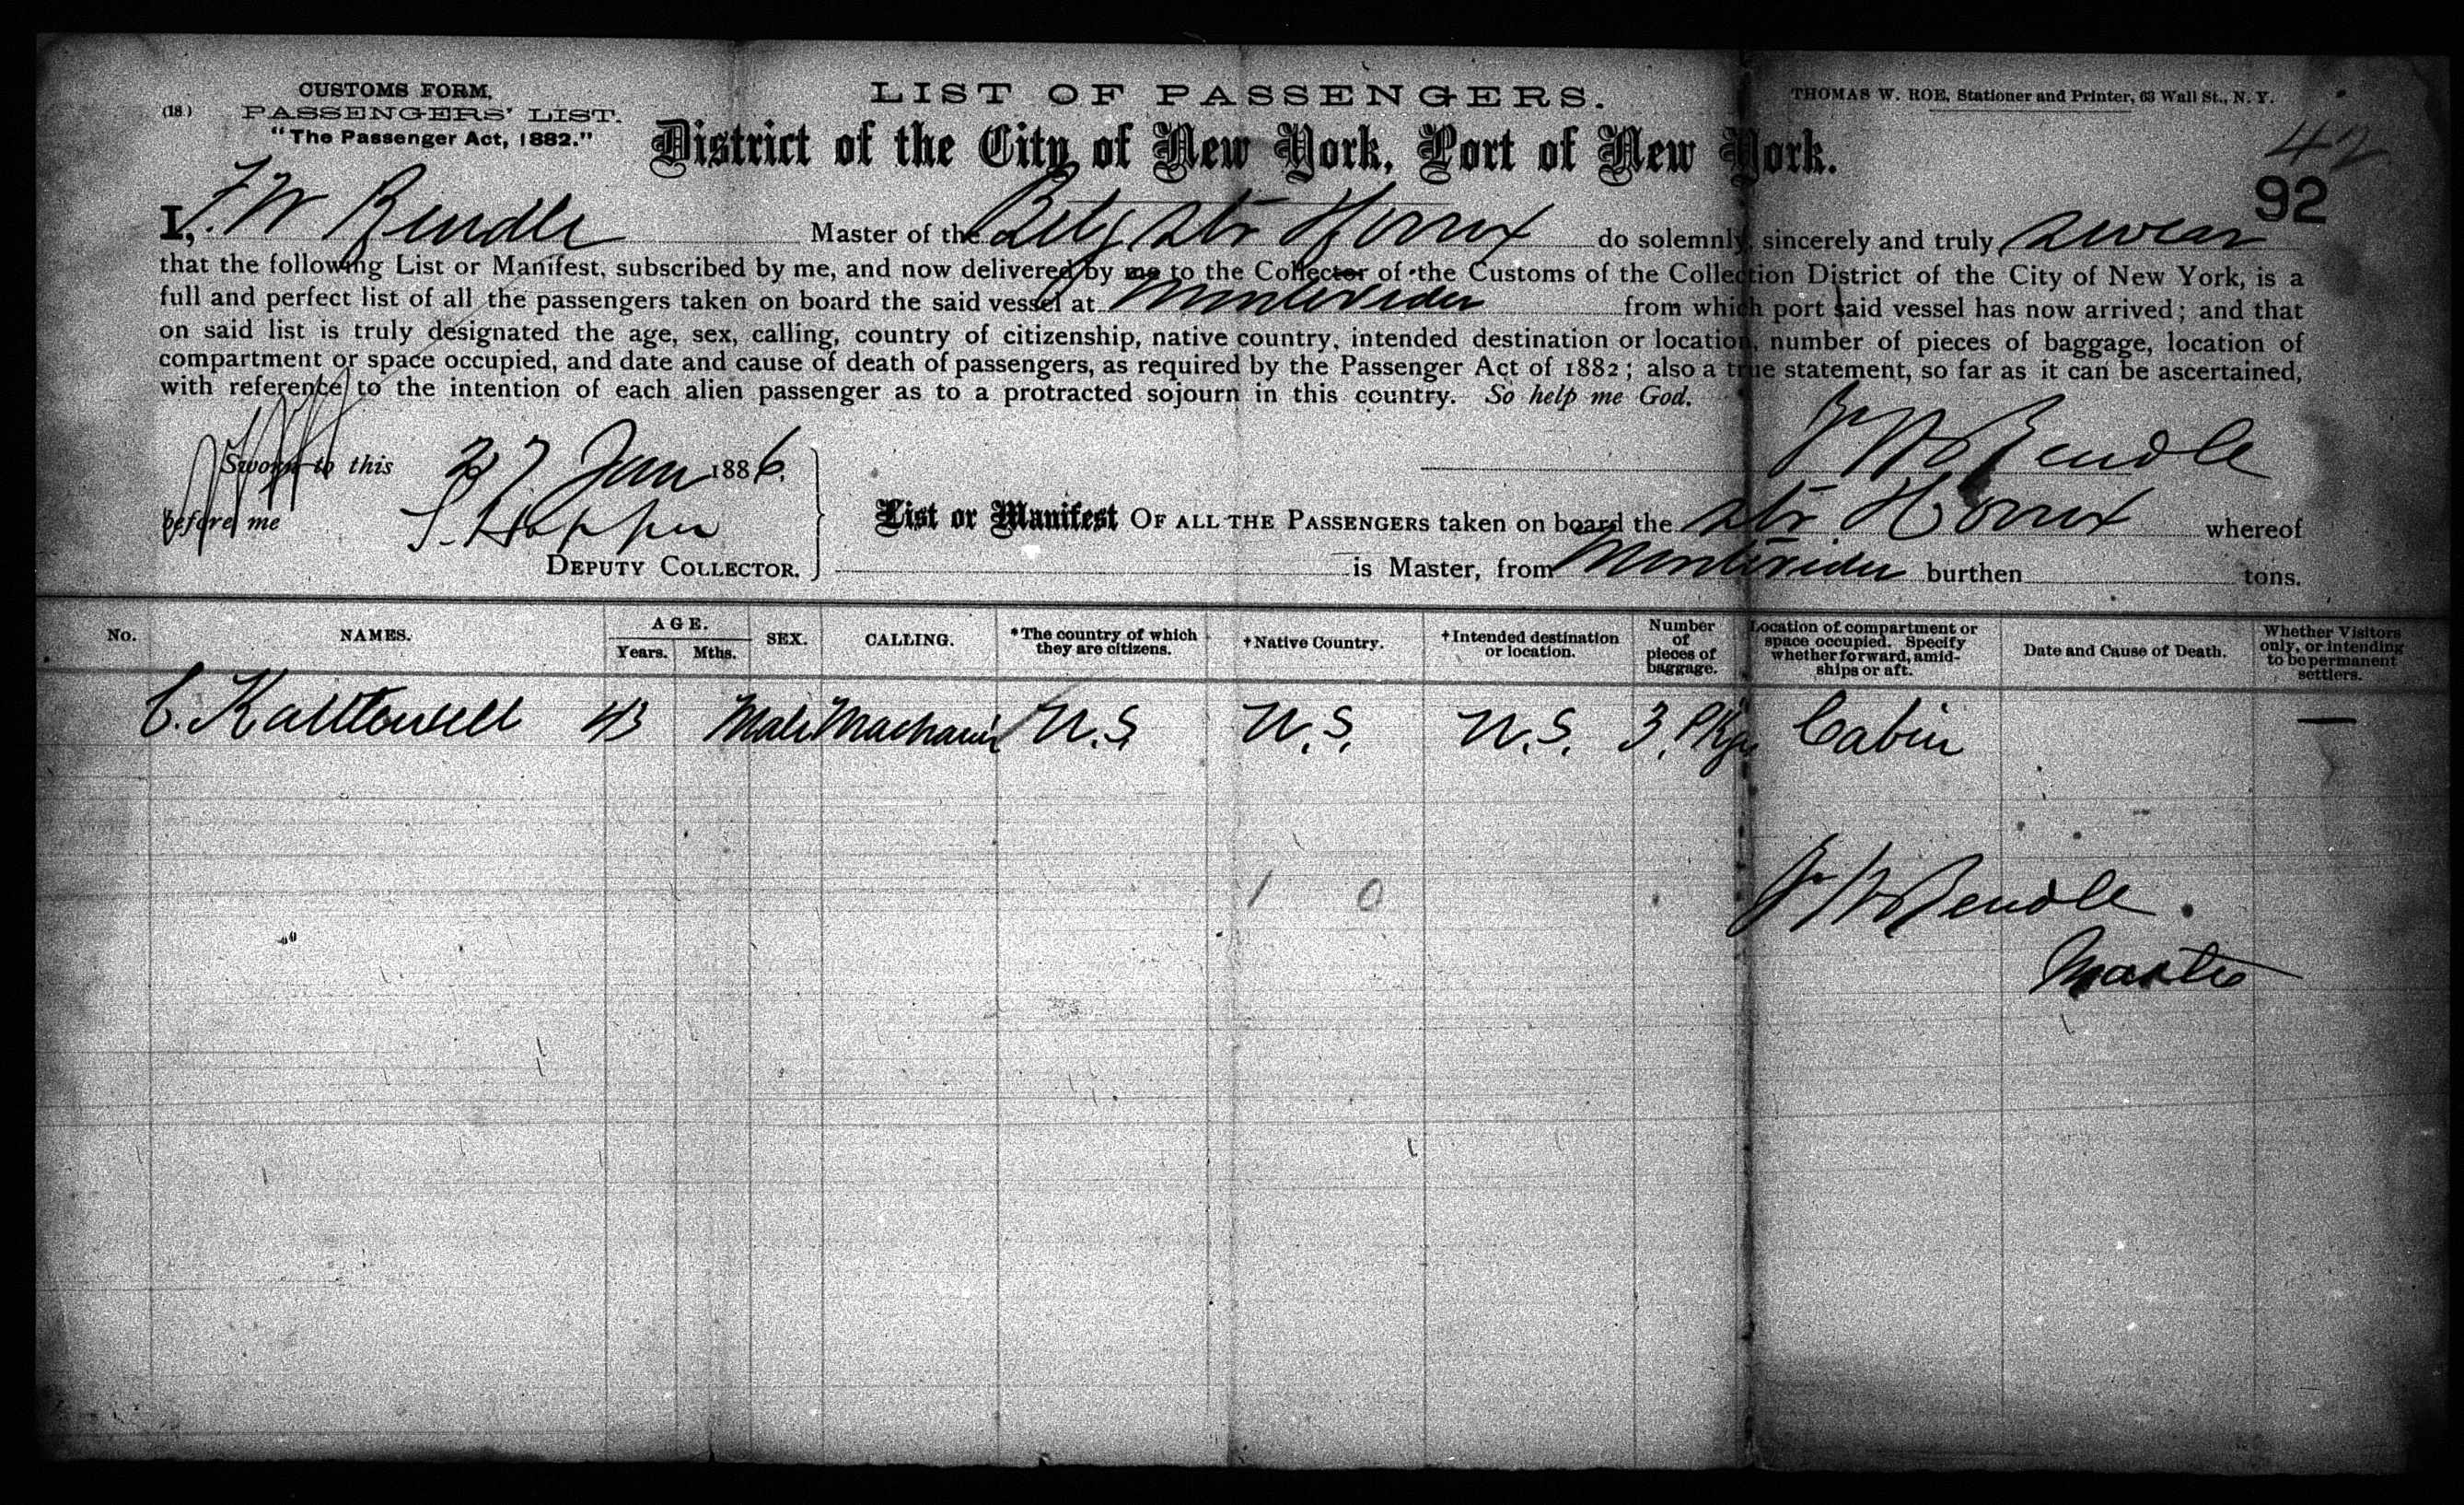 CUSTOMS FORM.
(18.) PASSENGERS' LIST.
"The Passenger Act, 1882."
LIST OF PASSENGERS.
THOMAS W. ROE, Stationer and Printer, 63 Wall St., N. Y.
District of the City of New York, Port of New York.
42
92
I, F. W. Rendle Master of the Belg Str Horrox do solemnly, sincerely and truly swear
that the following List or Manifest, subscribed by me, and now delivered by me to the Collector of the Customs of the Collection District of the City of New York, is a
full and perfect list of all the passengers taken on board the said vessel at Montevideo from which port said vessel has now arrived; and that
on said list is truly designated the age, sex, calling, country of citizenship, native country, intended destination or location, number of pieces of baggage, location of
compartment or space occupied, and date and cause of death of passengers, as required by the Passenger Act of 1882; also a true statement, so far as it can be ascertained,
with reference to the intention of each alien passenger as to a protracted sojourn in this country. So help me God.
F W Rendle
Sworn to this 27 Jan 1886.
before me S. Hopper
DEPUTY COLLECTOR.
List or Manifest OF ALL THE PASSENGERS taken on board the Str Horrox whereof
is Master, from Montevideo burthen tons.
No. NAMES. AGE. Years. Mths. SEX. CALLING. *The country of which they are citizens. †Native Country. †Intended destination or location. Number of pieces of baggage. Location of compartment or space occupied. Specify whether forward, amidships or aft. Date and Cause of Death. Whether Visitors only, or intending to be permanent settlers.
C. 43 Male Mechanic U.S. U.S. U.S. 3 Pkgs Cabin —
1 0
F W Rendle.
Master